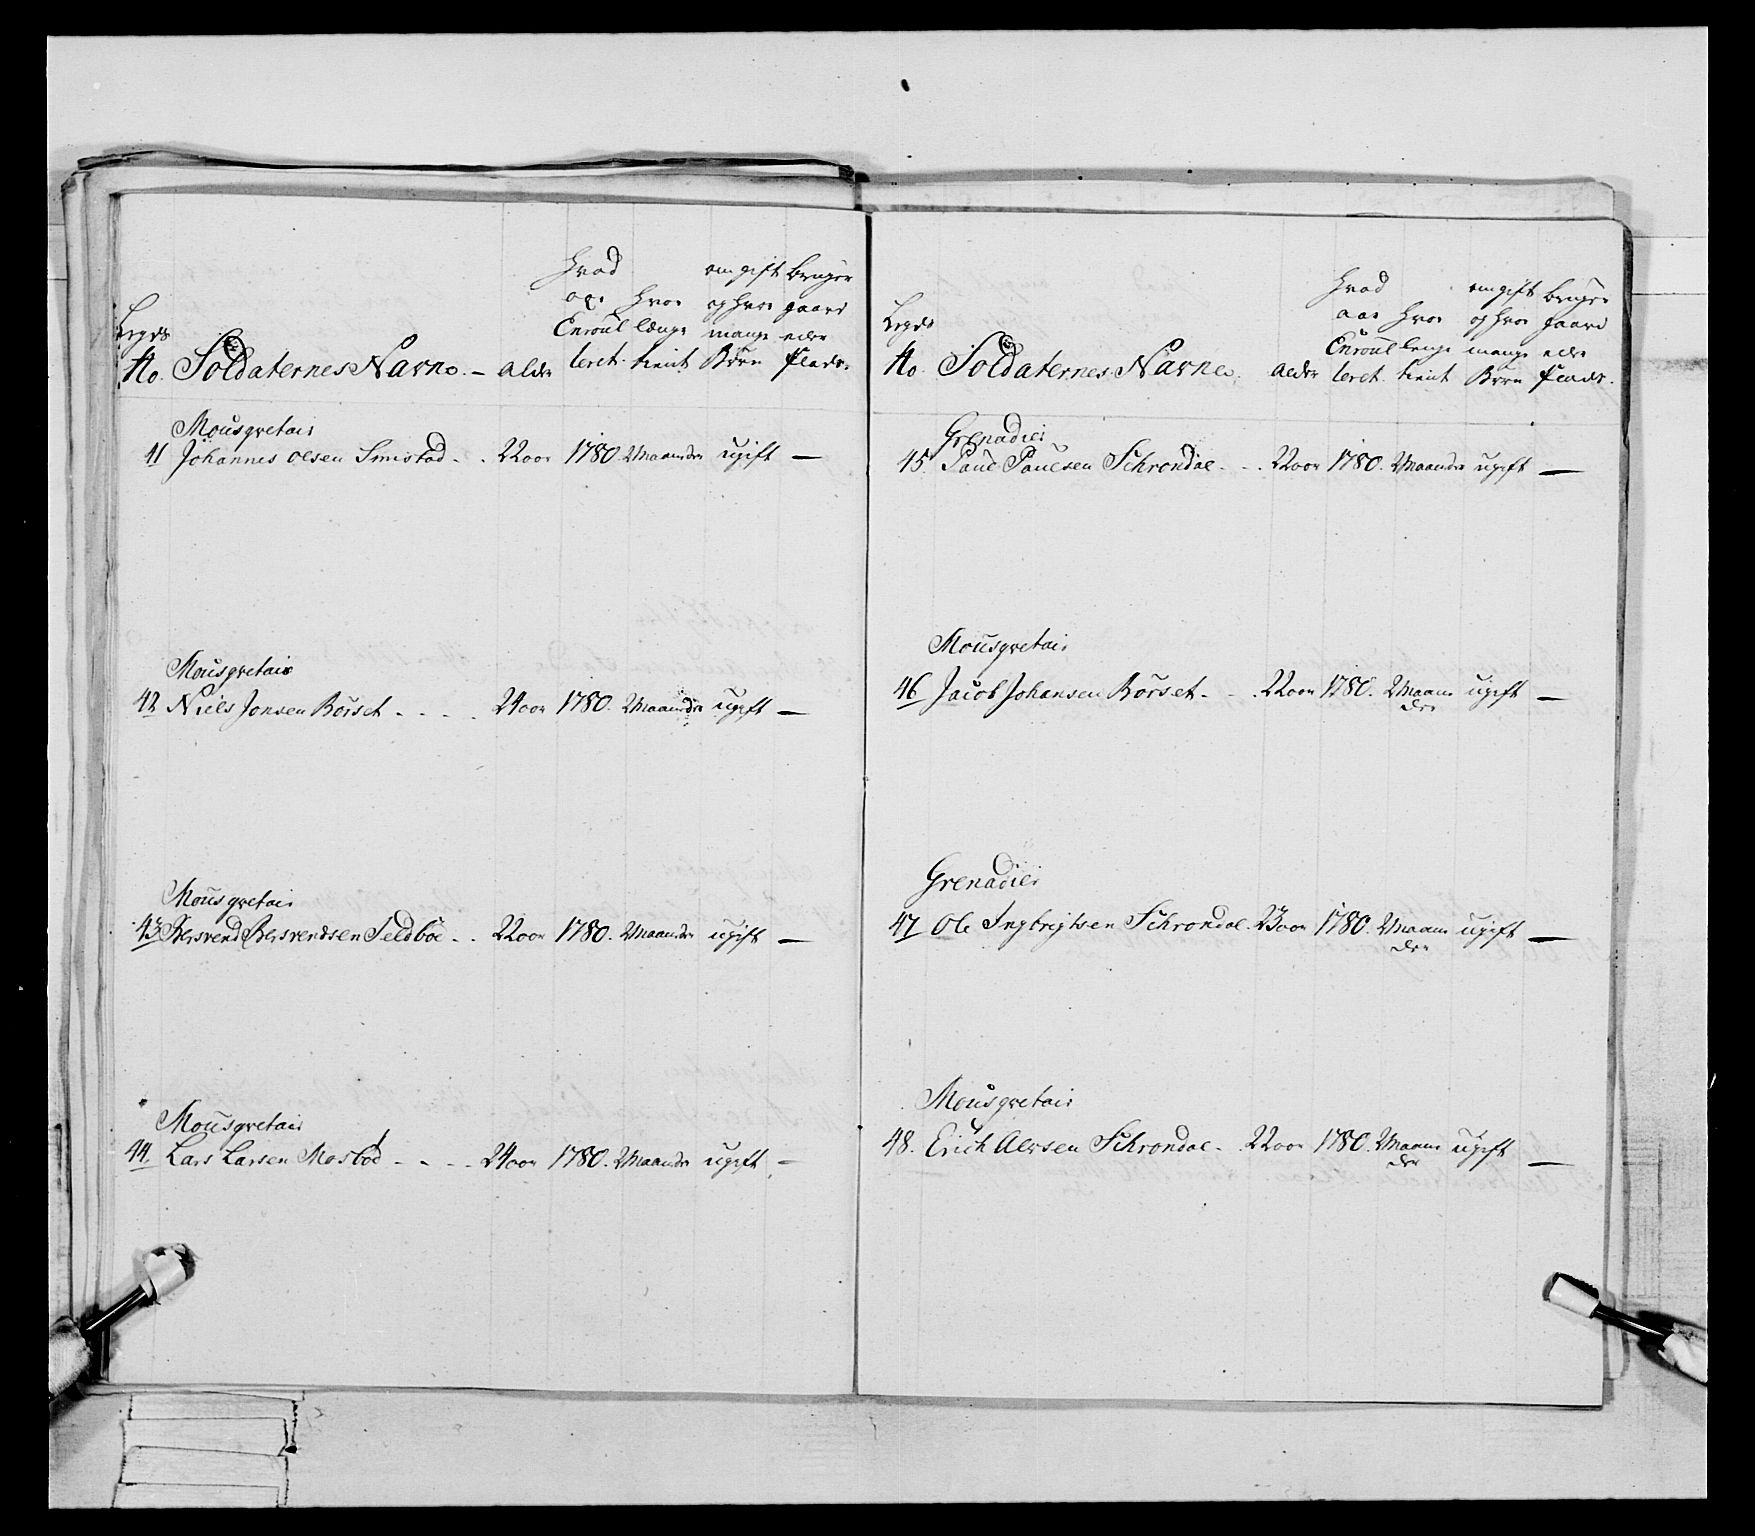 Hvad om gift bruger
aar Hvor og hvor gaard
Legds Enroul længe mange eller
No. Soldaternes Navne. - alder leret. tient Børn Plads.
Mousqvetair
41 Johannes Olsen Smistad - . 22 aar 1780. 2 Maander ugift —
Mousqvetair
42 Niels Jonsen Börset - . . . 24 aar 1780. 2 Maander ugift —
Mousqvetair
43 Bersvend Bersvendsen Seldböe . . 22 aar 1780. 2 Maander ugift —
Mousqvetair
44. Lars Larsen Mosböe - . . . 24 aar 1780. 2 Maander ugift —
Hvad om gift bruger
aar Hvor og hvor gaard
Legds Enroul længe mange eller
No. Soldaternes Navne. alder leret. tient Børn Plads.
Grenadier
45. Paul Paulsen Schrondal - . . 22 aar 1780. 2 Maander ugift —
Mousqvetair
46 Jacob Johansen Börset - . . 22 aar 1780. 2 Maan ugift —
der
Grenadier
47 Ole Ingbrigtsen Schrondal. 23 aar 1780. 2 Maan ugift —
der
Mousqvetair
48. Erich Alvsen Schrondal - . 22 aar 1780. 2 Maan ugift —
der